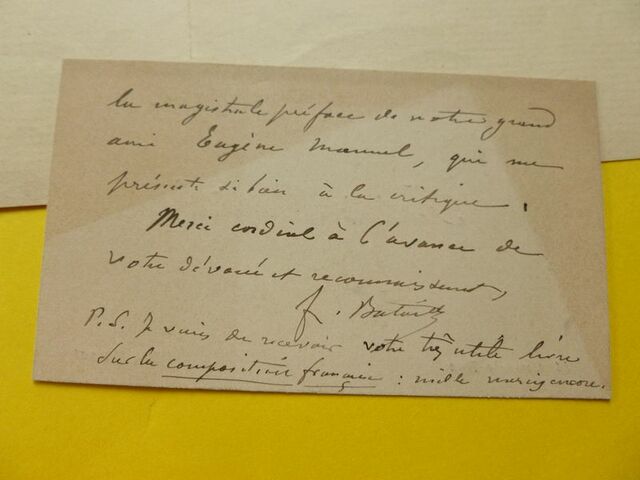 la magistrale préface de notre grand
ami Eugène Manuel, qui me
présente si bien à la critique.
Merci cordial à l'avance de
votre dévoué et reconnaissant,
f. Bataille
P.S. Je viens de recevoir votre très utile livre
sur la composition française : mille mercis encore.